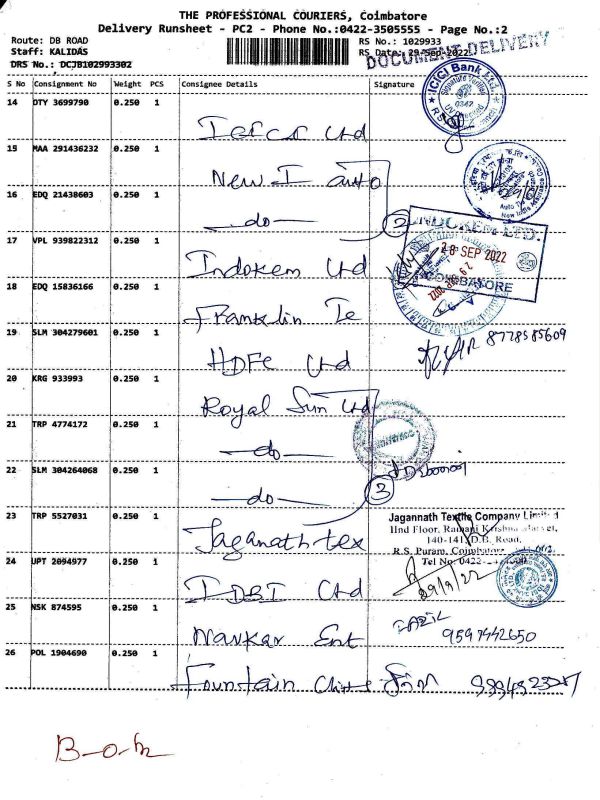 THE PROFESSIONAL COURIERS, Coimbatore
Delivery Runsheet - PC2 - Phone No.:0422-3505555 - Page No.:2
Route: DB ROAD
RS No.: 1029933
Staff: KALIDAS
RS Date: 29-Sep-2022
DOCUMENT DELIVERY
DRS No.: DCJB102993302
S No Consignment No Weight PCS Consignee Details Signature
14 DTY 3699790 0.250 1
ICICI Bank Ltd.
Signature Verified
0342
Icfcs Ltd
15 MAA 291436232 0.250 1
New I auto
16 EDQ 21438603 0.250 1
-do- 2
17 VPL 939822312 0.250 1
INDOKEM LTD.
28 SEP 2022
COIMBATORE
Indokem Ltd
18 EDQ 15836166 0.250 1
Franklin Te
19 SLM 304279601 0.250 1
8778585609
HDFC Ltd
20 KRG 933993 0.250 1
Royal Sun Ltd
21 TRP 4774172 0.250 1
-do-
22 SLM 304264068 0.250 1
-do- 3
23 TRP 5527031 0.250 1
Jagannath Textile Company Limited
IInd Floor,
140-141, D.B. Road,
R.S. Puram, Coimbatore
Tel No 0422-
Jaganath tex
24 UPT 2094977 0.250 1
29/9/22
IDBI Ltd
25 NSK 874595 0.250 1
9597442650
Navkar Ent
26 POL 1904690 0.250 1
Fountain